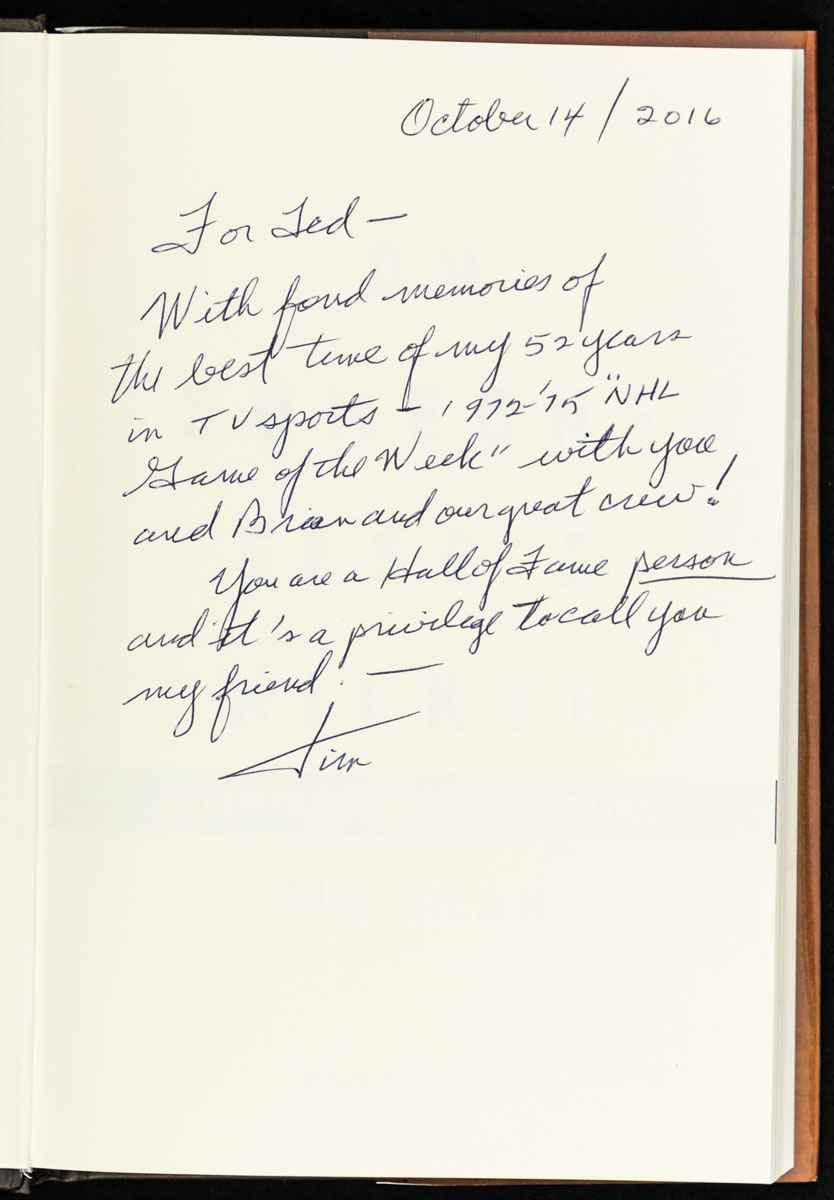 October 14 / 2016
For Ted —
With fond memories of
the best time of my 52 years
in TV sports — 1972-'75 "NHL
Game of the Week" with you
and Brian and our great crew!
You are a Hall of Fame person
and it's a privilege to call you
my friend! —
Tim
TIM RYAN